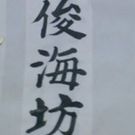 俊海坊